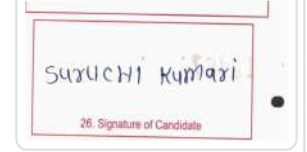 Suruchi Kumari
26. Signature of Candidate